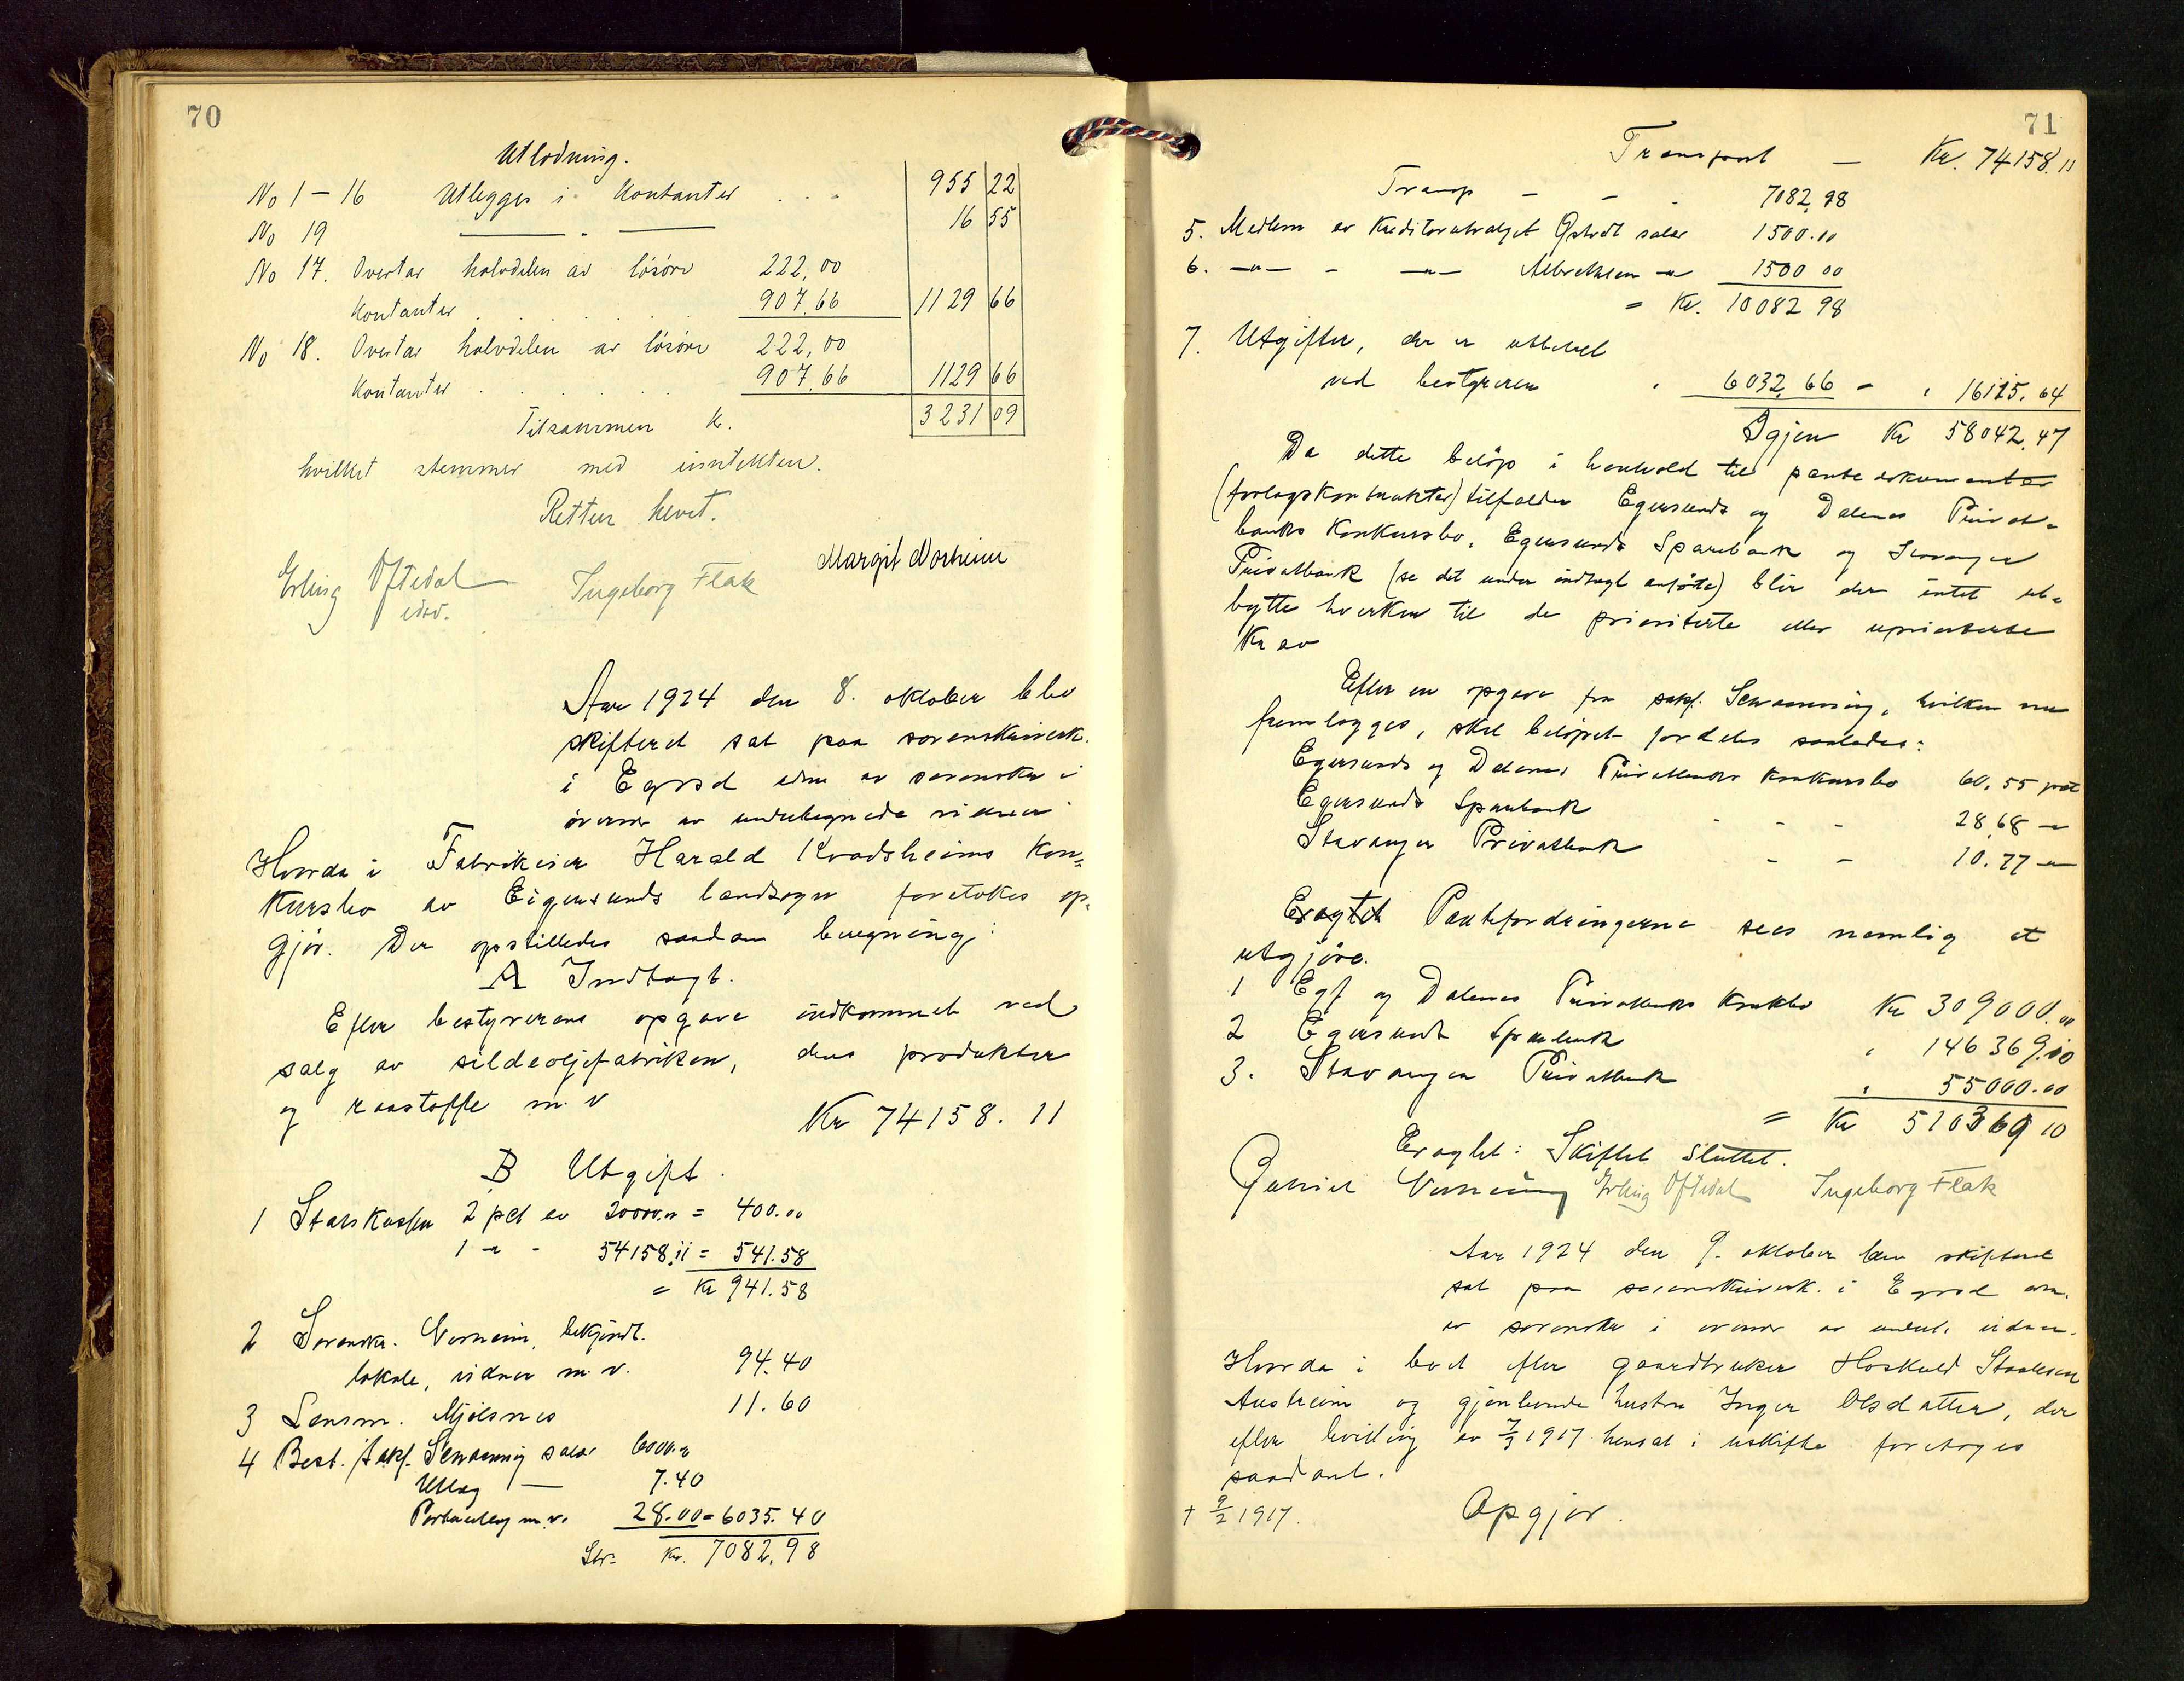 70
Utlodning.
No 1 – 16 Utlegges i Kontanter . . . 955 22
No 19 —— " —— 16 55
No 17. Overtar halvdelen av lösöre 222,00
Kontanter . . . . . 907,66 1129 66
No 18. Overtar halvdelen av lösöre 222,00
Kontanter . . . . . 907,66 1129 66
Tilsammen k. 3231 09
hvilket stemmer med inntekten.
Retten hevet.
Erling Oftedal Ingeborg Flak Margit Norheim
Aar 1924 den 8. oktober blev
skifteret sat paa sorenskriverk.
i Egrsd av sorenskr i
overvær av undertegnede vidner
Hvorda i Fabrikeier Harald Kvadsheims Kon=
kursbo av Eigersunds landsogn foretokes op=
gjör. Der opstilledes saadan beregning:
A Indtægt.
Efter bestyrerens opgave indkommet ved
salg av sildeoljefabriken, dens produkter
og raastoffe m. v Kr 74158. 11
B Utgift.
1 Statskassen 2 pct av 20000.00 = 400.00
1 – " - 54158.11 = 541.58
= Kr 941.58
2 Sorenskr. bekjendt.
lokale, vidner m. v. 94.40
3 Lensm. Mjölsnes 11.60
4 Best. /sakf. Schwanning salær 6000.00
Utlæg — 7.40
m.v. 28.00 = 6035.40
Kr. 7082,98
71
Transport — Kr. 74158.11
Transp - - - 7082,98
5. Medlem av Kreditorutvalget salær 1500.00
6. —"— - —"— Albrethsen —"— 1500 00
= Kr. 10082 98
7. Utgifter, der er utbetalt
ved bestyreren . 6032,66 – " 16115.64
Igjen Kr 58042,47
Da dette belöp i henhold til pantedokumenter
(forlagskontrakter) tilfalder Egersunds og Dalenes Privat=
banks Konkursbo, Egersunds Sparebank og Stavanger
Privatbank (se det under indtægt anförte) blir der intet ut=
bytte hverken til de prioriterte eller upriorterte
Krav
Efter en opgave fra sakf. Schwanning, hvilken nu
fremlegges, skal belöpet fordeles saaledes:
Egersunds og Dalenes Privatbanks Konkursbo 60,55 pct
Egersunds Sparebank - - - 28,68 —"—
Stavanger Privatbank - - 10.77 —"—
Eragtet Pantefordringerne sees nemlig at
utgjöre.
1 Egs og Dalenes Privatbanks Konkbo Kr 309000.00
2 Egersunds Sparebank " 146369.10
3. Stavanger Privatbank " 55000.00
= Kr 510369 10
Eragtet: Skiftet sluttet.
Erling Oftedal Ingeborg Flak
Aar 1924 den 9. oktober blev skifteret
sat paa sorenskriverk. i Egrsd
av sorenskr i overvær av undert. vidner.
Hvorda i boet efter gaardbruker Hoskuld Staalesen
Austreim og gjenlevende hustru Inger Olsdatter, der
efter bevilling av 7/3 1917 hensat i uskifte foretoges
saadant.
† 9/2 1917. Opgjör.